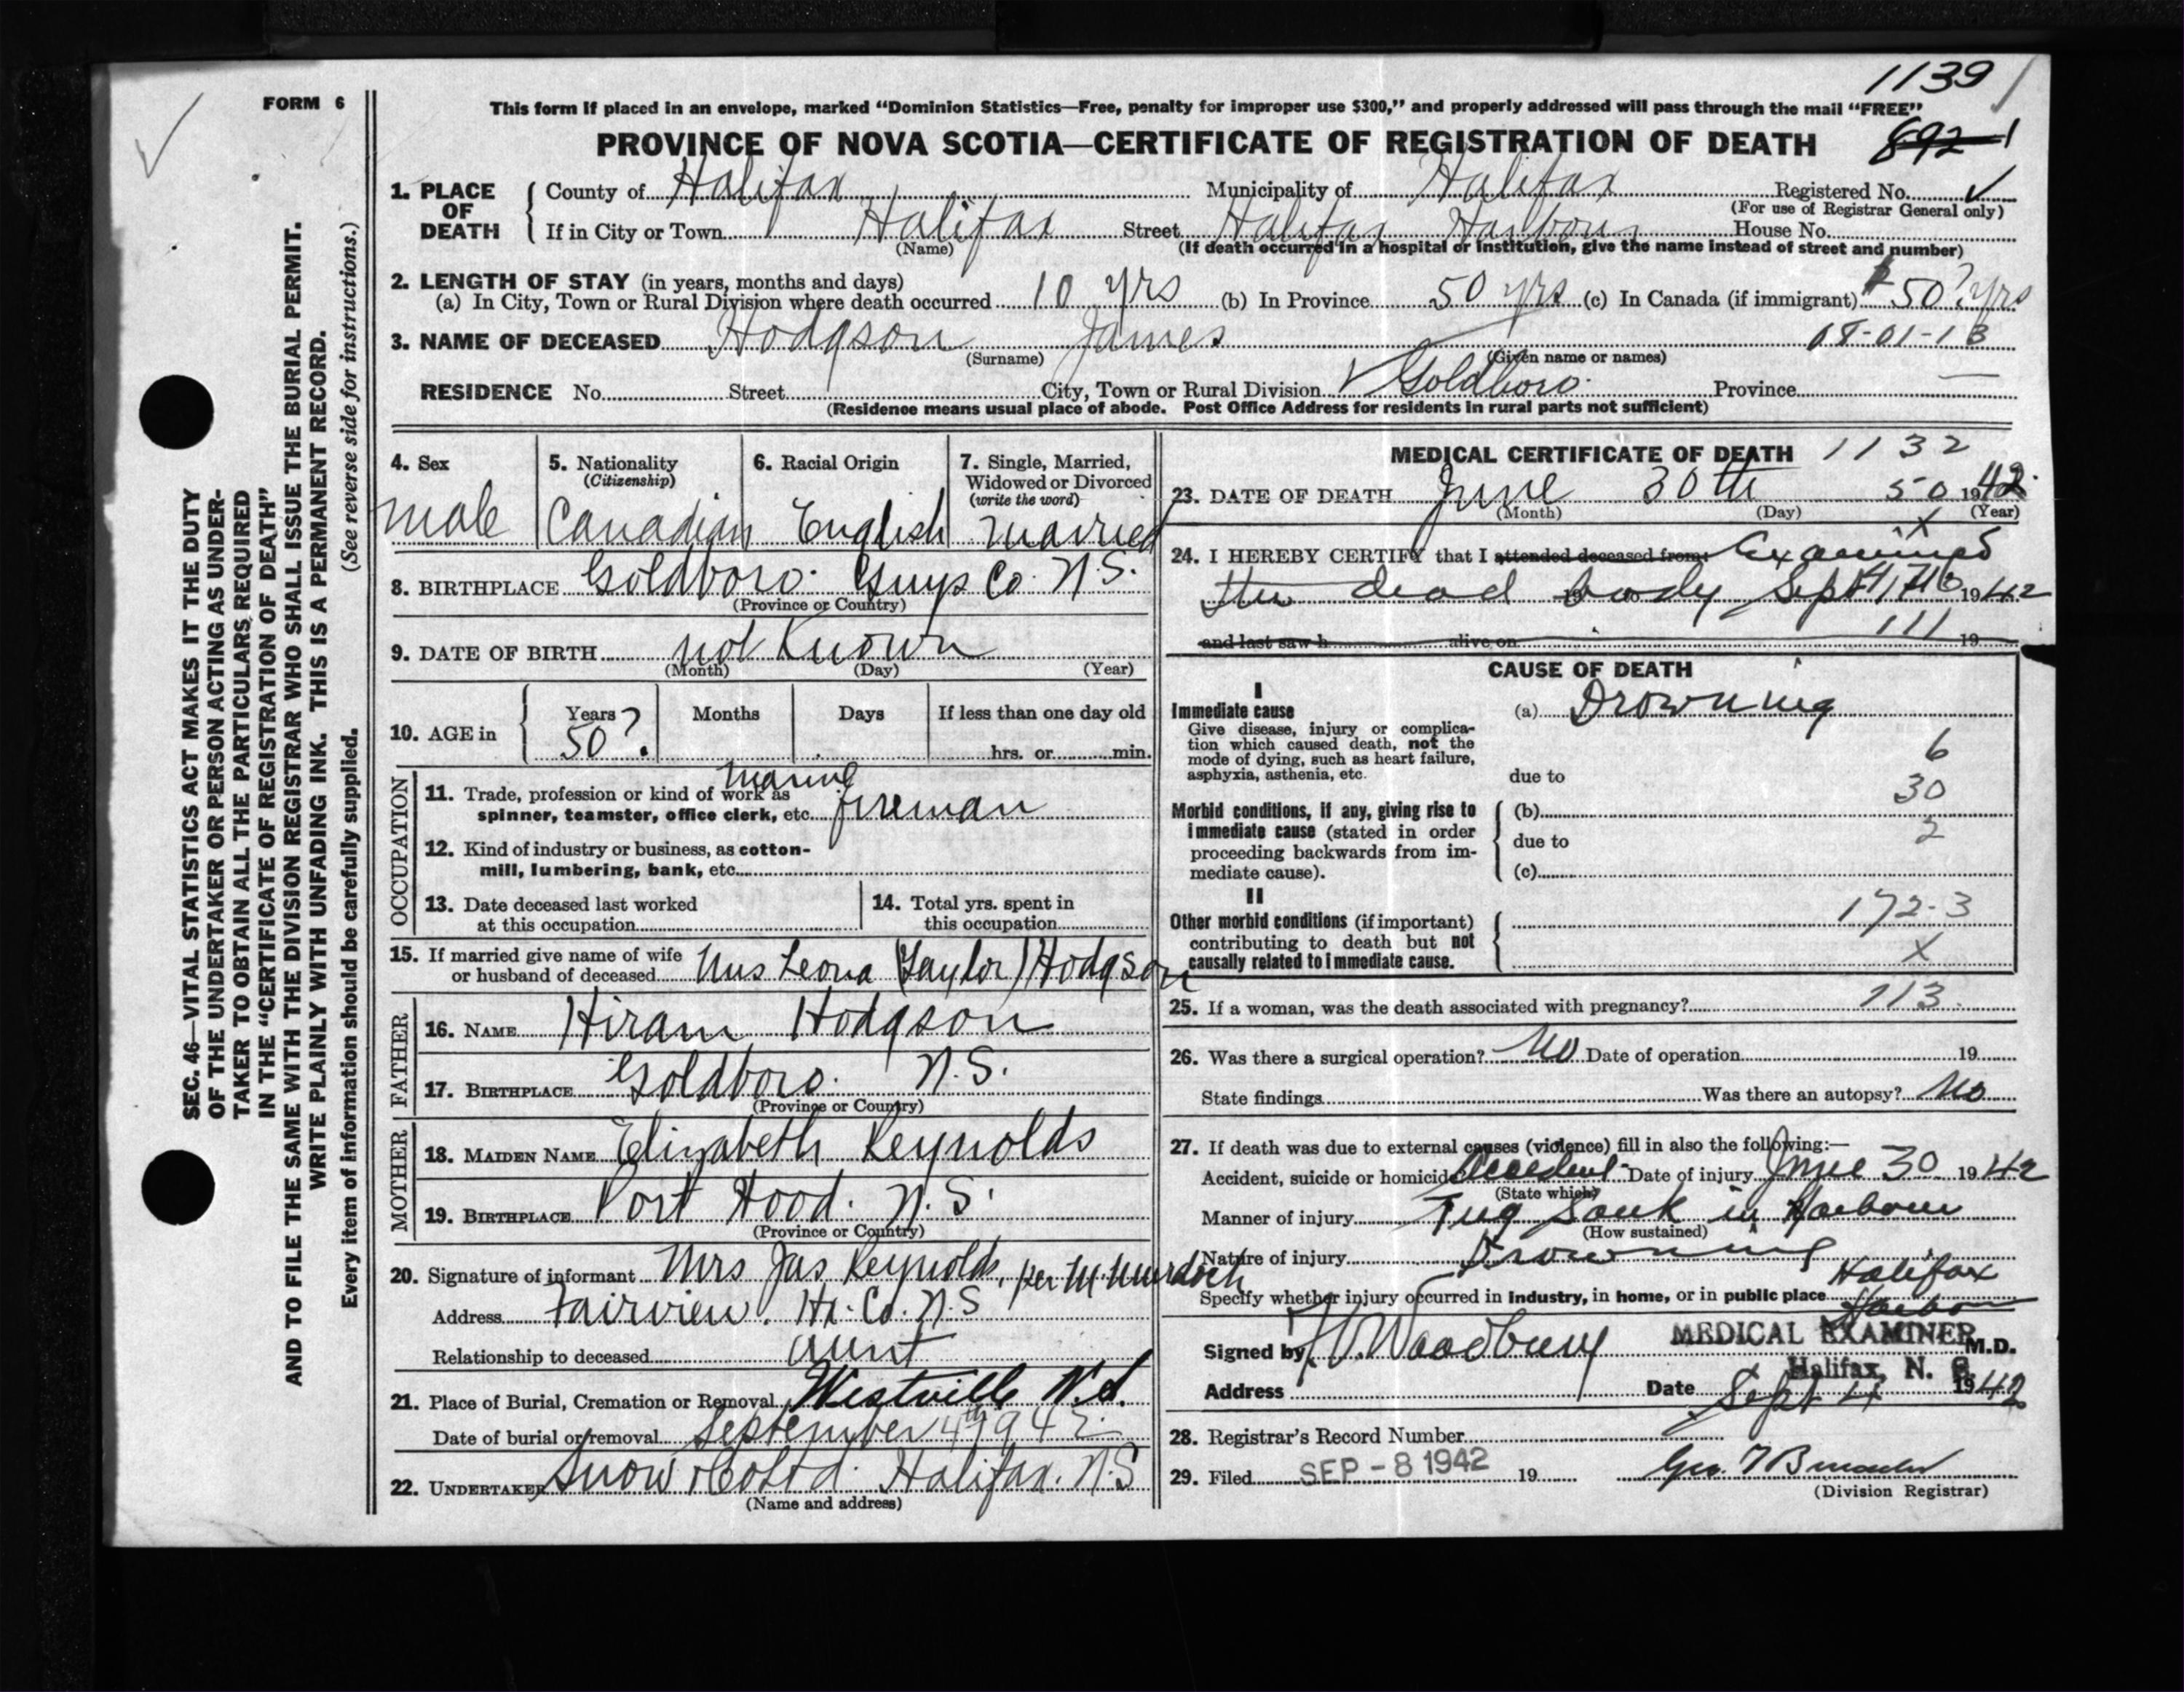 1139
FORM 6
This form if placed in an envelope, marked "Dominion Statistics—Free, penalty for improper use $300," and properly addressed will pass through the mail "FREE"
PROVINCE OF NOVA SCOTIA—CERTIFICATE OF REGISTRATION OF DEATH
892-1
SEC. 46—VITAL STATISTICS ACT MAKES IT THE DUTY
OF THE UNDERTAKER OR PERSON ACTING AS UNDER-
TAKER TO OBTAIN ALL THE PARTICULARS REQUIRED
IN THE "CERTIFICATE OF REGISTRATION OF DEATH"
AND TO FILE THE SAME WITH THE DIVISION REGISTRAR WHO SHALL ISSUE THE BURIAL PERMIT.
WRITE PLAINLY WITH UNFADING INK. THIS IS A PERMANENT RECORD.
Every item of information should be carefully supplied. (See reverse side for instructions.)
1. PLACE OF DEATH
County of Halifax Municipality of Halifax Registered No.
(For use of Registrar General only)
If in City or Town Halifax Street Halifax Harbour House No.
(Name) (If death occurred in a hospital or institution, give the name instead of street and number)
2. LENGTH OF STAY (in years, months and days)
(a) In City, Town or Rural Division where death occurred 10 yrs (b) In Province 50 yrs (c) In Canada (if immigrant) 50? yrs
3. NAME OF DECEASED Hodgson James 08-01-13
(Surname) (Given name or names)
RESIDENCE No. Street City, Town or Rural Division Goldboro. Province
(Residence means usual place of abode. Post Office Address for residents in rural parts not sufficient)
4. Sex
male
5. Nationality
(Citizenship)
Canadian
6. Racial Origin
English
7. Single, Married,
Widowed or Divorced
(write the word)
Married
8. BIRTHPLACE Goldboro. Guys Co. N.S.
(Province or Country)
9. DATE OF BIRTH not Known
(Month) (Day) (Year)
10. AGE in Years Months Days If less than one day old
50? hrs. or min.
OCCUPATION
11. Trade, profession or kind of work as
spinner, teamster, office clerk, etc. Marine fireman
12. Kind of industry or business, as cotton-
mill, lumbering, bank, etc.
13. Date deceased last worked
at this occupation
14. Total yrs. spent in
this occupation
15. If married give name of wife
or husband of deceased Mrs Leona (Taylor) Hodgson
FATHER
16. NAME Hiram Hodgson
17. BIRTHPLACE Goldboro. N.S.
(Province or Country)
MOTHER
18. MAIDEN NAME Elizabeth Reynolds
19. BIRTHPLACE Port Hood. N.S.
(Province or Country)
20. Signature of informant Mrs Jas Reynolds, per M. Murdoch
Address Fairview. Hx. Co. N.S
Relationship to deceased aunt
21. Place of Burial, Cremation or Removal Westville N.S.
Date of burial or removal September 4th 1942
22. UNDERTAKER Snow & Co Ltd. Halifax. N.S
(Name and address)
MEDICAL CERTIFICATE OF DEATH 1132
23. DATE OF DEATH June 30th 50 1942
(Month) (Day) (Year)
X
24. I HEREBY CERTIFY that I attended deceased from: Examined
the dead body Sept 1942
and last saw h alive on 111 19
CAUSE OF DEATH
I
Immediate cause
Give disease, injury or complica-
tion which caused death, not the
mode of dying, such as heart failure,
asphyxia, asthenia, etc.
(a) Drowning
6
due to
30
Morbid conditions, if any, giving rise to
immediate cause (stated in order
proceeding backwards from im-
mediate cause).
(b)
2
due to
(c)
II
Other morbid conditions (if important)
contributing to death but not
causally related to immediate cause.
172-3
X
25. If a woman, was the death associated with pregnancy? 113
26. Was there a surgical operation? No Date of operation 19
State findings Was there an autopsy? No
27. If death was due to external causes (violence) fill in also the following:—
Accident, suicide or homicide Accident Date of injury June 30 1942
(State which)
Manner of injury Tug Sank in Harbour
(How sustained)
Nature of injury Drowning
Specify whether injury occurred in industry, in home, or in public place Halifax Harbour
Signed by Woodbury MEDICAL EXAMINER M.D.
Halifax, N. S.
Address Date Sept 4 1942
28. Registrar's Record Number
29. Filed SEP - 8 1942 19
(Division Registrar)